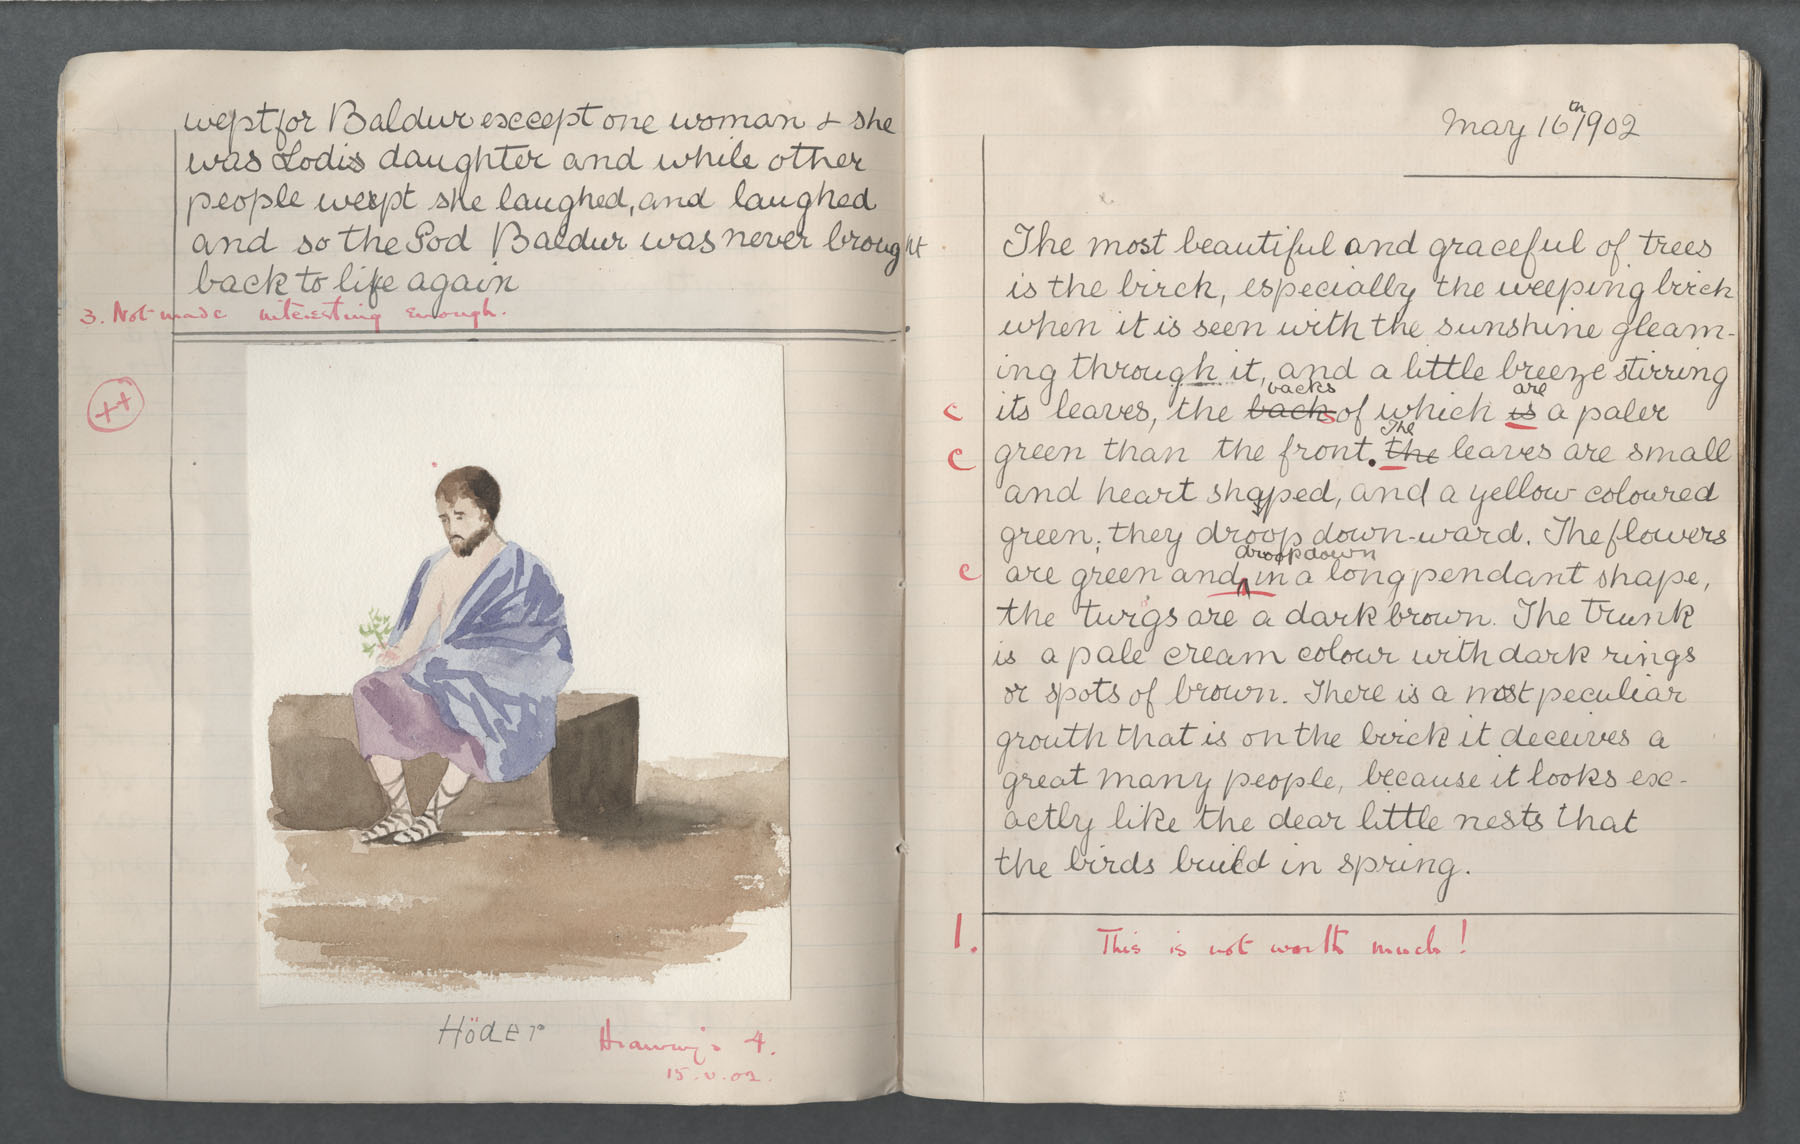 wept for Baldur except one woman & she
was Lodis daughter and while other
people wept she laughed, and laughed
and so the God Baldur was never brought
back to life again
3. Not made interesting enough.
++
Höder
Drawing 4.
15.V.02.
May 16th 1902
The most beautiful and graceful of trees
is the birch, especially the weeping birch
when it is seen with the sunshine gleam-
ing through it, and a little breeze stirring
backs are
c its leaves, the backs of which is a paler
The
c green than the front. the leaves are small
and heart shaped, and a yellow coloured
green; they droop down-ward. The flowers
droop down
c are green and in a long pendant shape,
the twigs are a dark brown. The trunk
is a pale cream colour with dark rings
or spots of brown. There is a most peculiar
grouth that is on the birck it deceives a
great many people, because it looks ex-
actly like the dear little nests that
the birds build in spring.
1. This is not worth much!